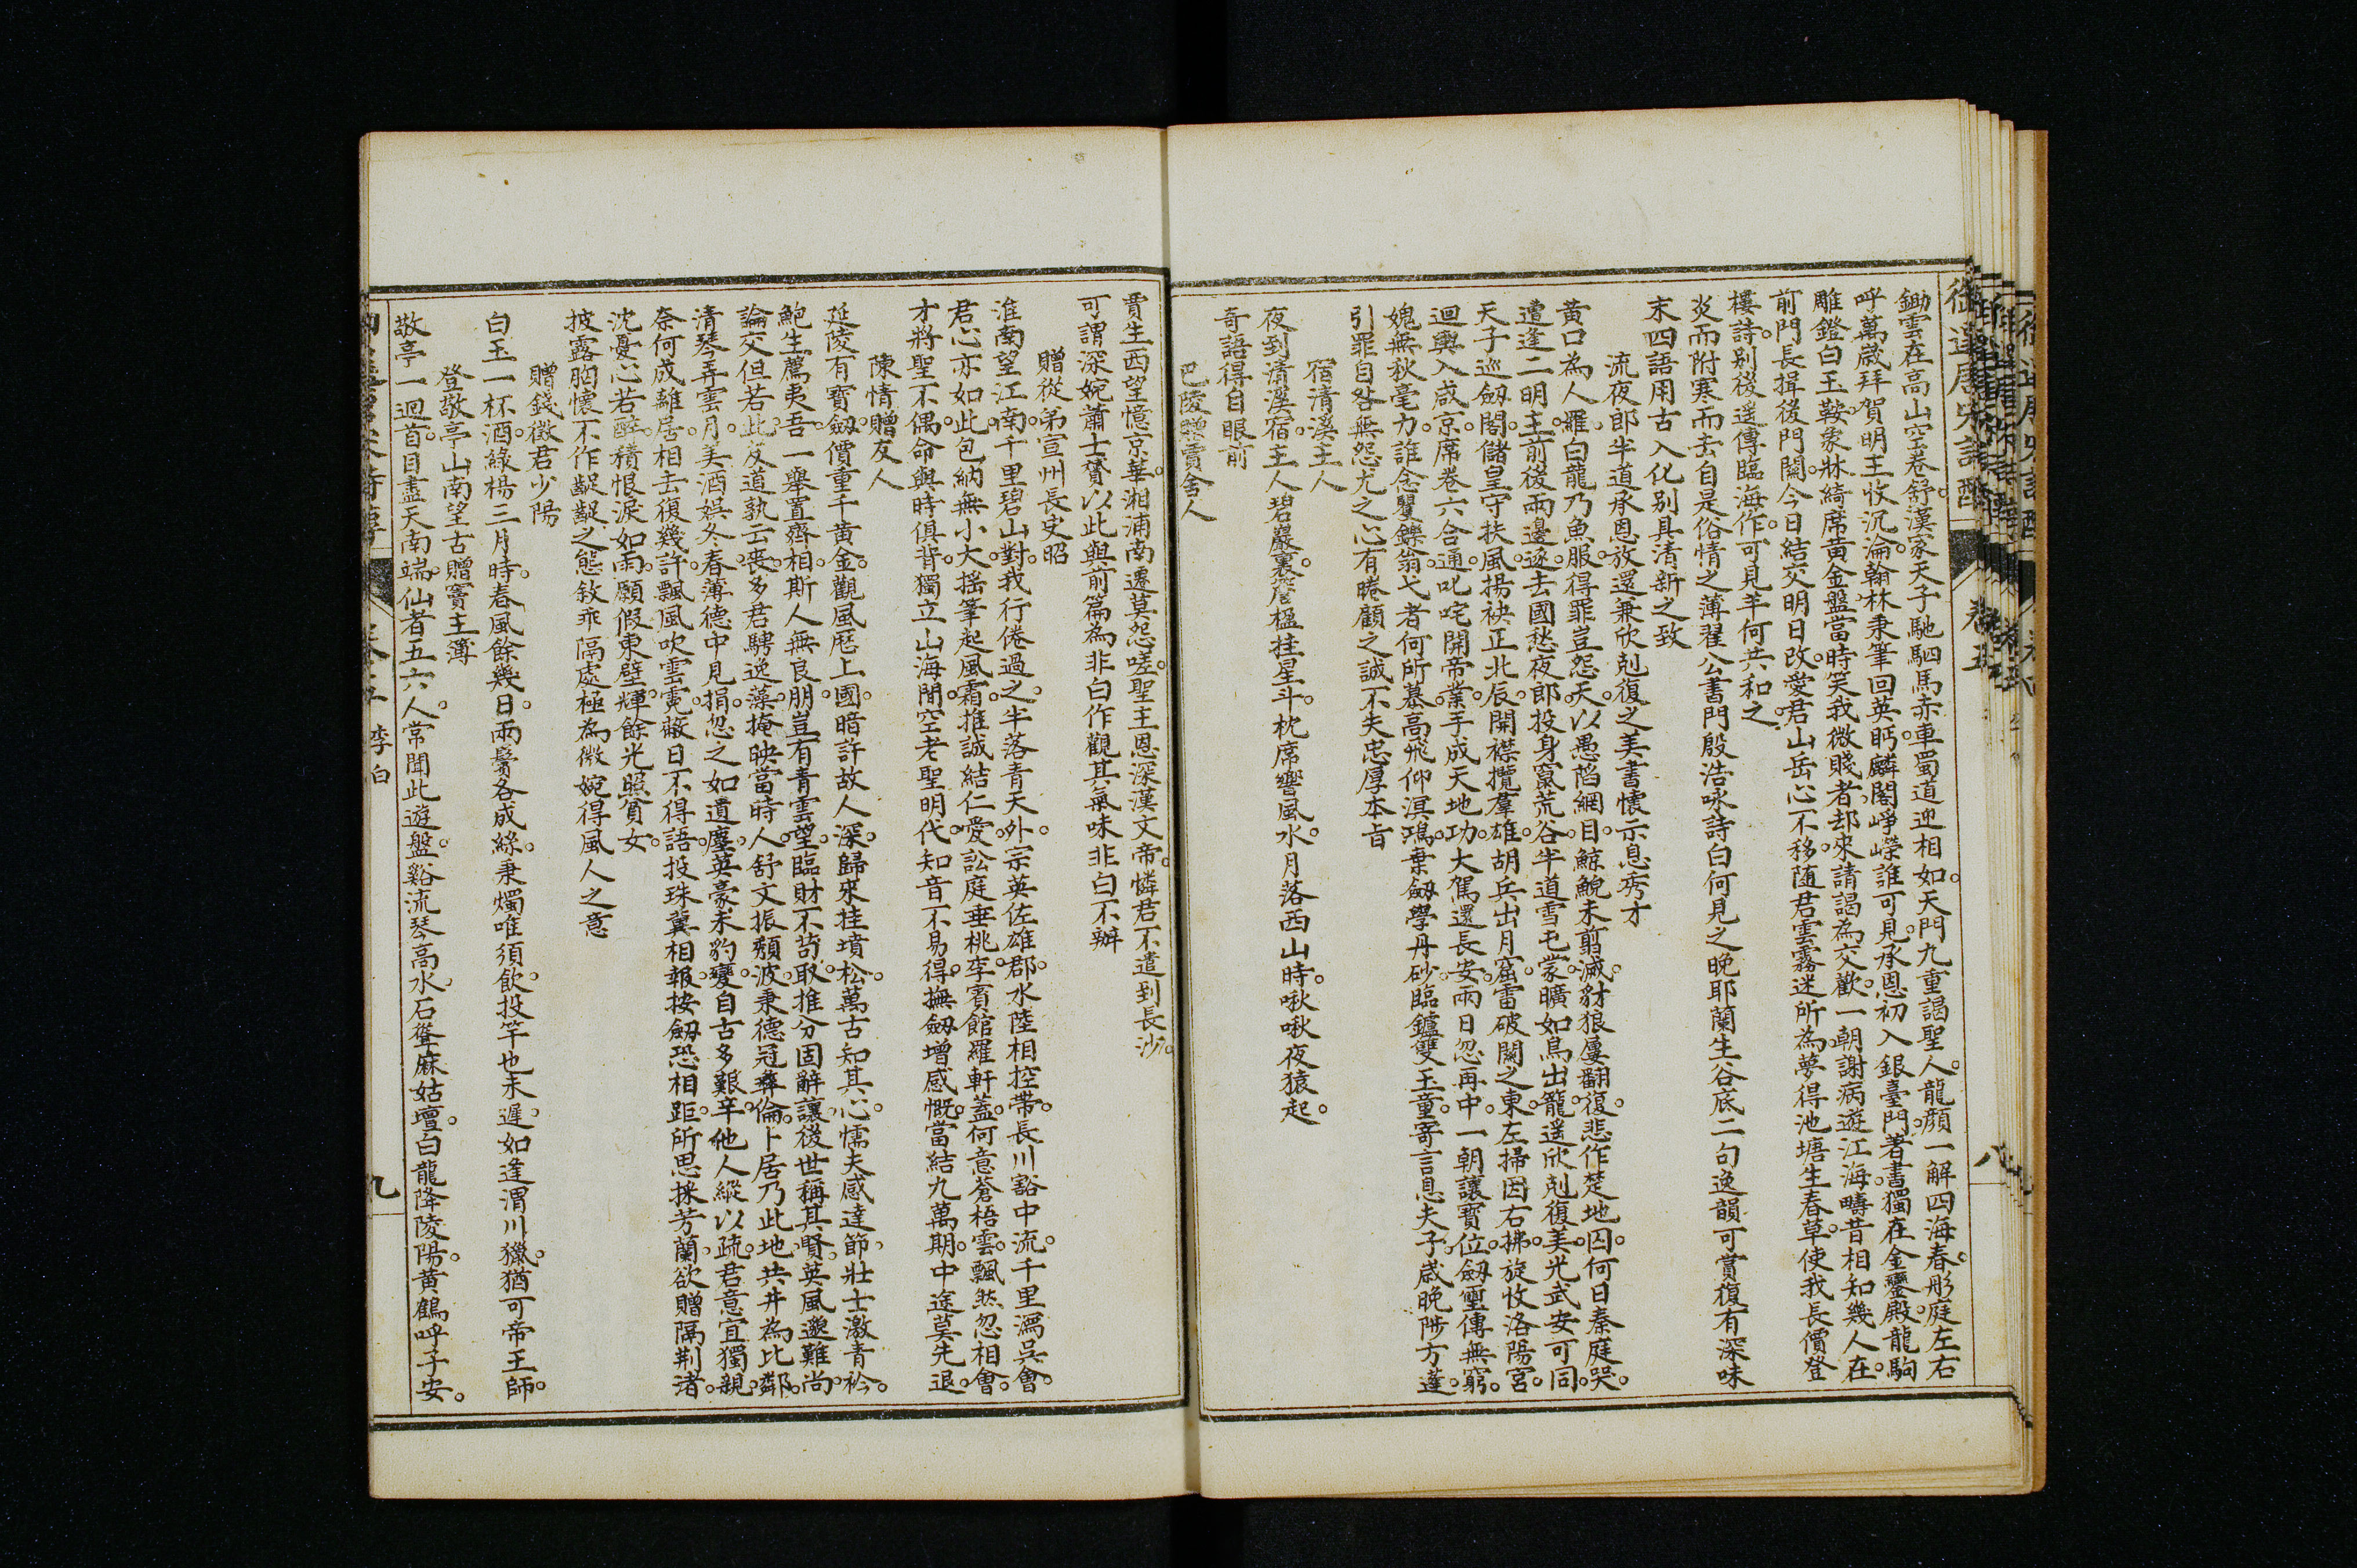 鋤雲在高山空卷舒漢家天子馳駟馬赤車蜀道迎相如天門九重謁聖人龍顏一解四海春彤庭左右
呼萬歲拜賀明主收沉淪翰林秉筆回英眄麟閣崢嶸誰可見承恩初入銀臺門著書獨在金鑾殿龍駒
雕鐙白玉鞍象牀綺席黃金盤當時笑我微賤者却來請謁為交歡一朝謝病遊江海疇昔相知幾人在
前門長揖後門關今日結交明日改愛君山岳心不移隨君雲霧迷所為夢得池塘生春草使我長價登
樓詩別後遙傳臨海作可見羊何共和之
炎而附寒而去自是俗情之薄翟公書門殷浩咏詩白何見之晚耶蘭生谷底二句逸韻可賞復有深味
末四語用古入化別具清新之致
流夜郎半道承恩放還兼欣剋復之美書懷示息秀才
黃口為人羅白龍乃魚服得罪豈怨天以愚陷網目鯨鯢未翦滅豺狼屢翻復悲作楚地囚何日秦庭哭
遭逢二明主前後兩遷逐去國愁夜郎投身竄荒谷半道雪屯蒙曠如鳥出籠遙欣剋復美光武安可同
天子巡劔閣儲皇守扶風揚袂正北辰開襟攬羣雄胡兵出月窟雷破關之東左掃因右拂旋收洛陽宮
迴輿入咸京席卷六合通叱咤開帝業手成天地功大駕還長安兩日忽再中一朝讓寶位劔璽傳無窮
媿無秋毫力誰念矍鑠翁弋者何所慕高飛仰溟鴻棄劔學丹砂臨鑪雙玉童寄言息夫子歲晚陟方蓬
引罪自咎無怨尤之心有睠顧之誠不失忠厚本旨
宿清溪主人
夜到清溪宿主人碧巖裏簷楹挂星斗枕席響風水月落西山時啾啾夜猿起
奇語得自眼前
巴陵贈賈舍人
賈生西望憶京華湘浦南遷莫怨嗟聖主恩深漢文帝憐君不遣到長沙
可謂深婉蕭士贇以此與前篇為非白作觀其氣味非白不辦
贈從弟宣州長史昭
淮南望江南千里碧山對我行倦過之半落青天外宗英佐雄郡水陸相控帶長川豁中流千里瀉吳會
君心亦如此包納無小大搖筆起風霜推誠結仁愛訟庭垂桃李賓館羅軒蓋何意蒼梧雲飄然忽相會
才將聖不偶命與時俱背獨立山海間空老聖明代知音不易得撫劔增感慨當結九萬期中途莫先退
陳情贈友人
延陵有寶劔價重千黃金觀風歷上國暗許故人深歸來挂墳松萬古知其心懦夫感達節壯士激青衿
鮑生薦夷吾一舉置齊相斯人無良朋豈有青雲望臨財不苟取推分固辭讓後世稱其賢英風邈難尚
論交但若此友道孰云喪多君騁逸藻掩映當時人舒文振頹波秉德冠彝倫卜居乃此地共井為比鄰
清琴弄雲月美酒娛冬春薄德中見捐忽之如遺塵英豪未豹變自古多艱辛他人縱以疏君意宜獨親
奈何成離居相去復幾許飄風吹雲霓蔽日不得語投珠冀相報按劔恐相距所思採芳蘭欲贈隔荆渚
沈憂心若醉積恨淚如雨願假東壁輝餘光照貧女
披露胸懷不作齷齪之態敘乖隔處極為微婉得風人之意
贈錢徵君少陽
白玉一杯酒綠楊三月時春風餘幾日兩鬢各成絲秉燭唯須飲投竿也未遲如逢渭川獵猶可帝王師
登敬亭山南望古贈竇主簿
敬亭一迴首目盡天南端仙者五六人常聞此遊盤谿流琴高水石聳麻姑壇白龍降陵陽黃鶴呼子安
卷五 李白
九